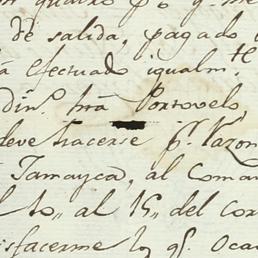 n quatro p.o q.e me
de salida, pagado
á efectuado igualm.te
din.o hta Portovelo
deve hacerse p.r razon
Jamayca, al Coman
l 10,, al 15,, del cor
isfacerme lo q.e Oca